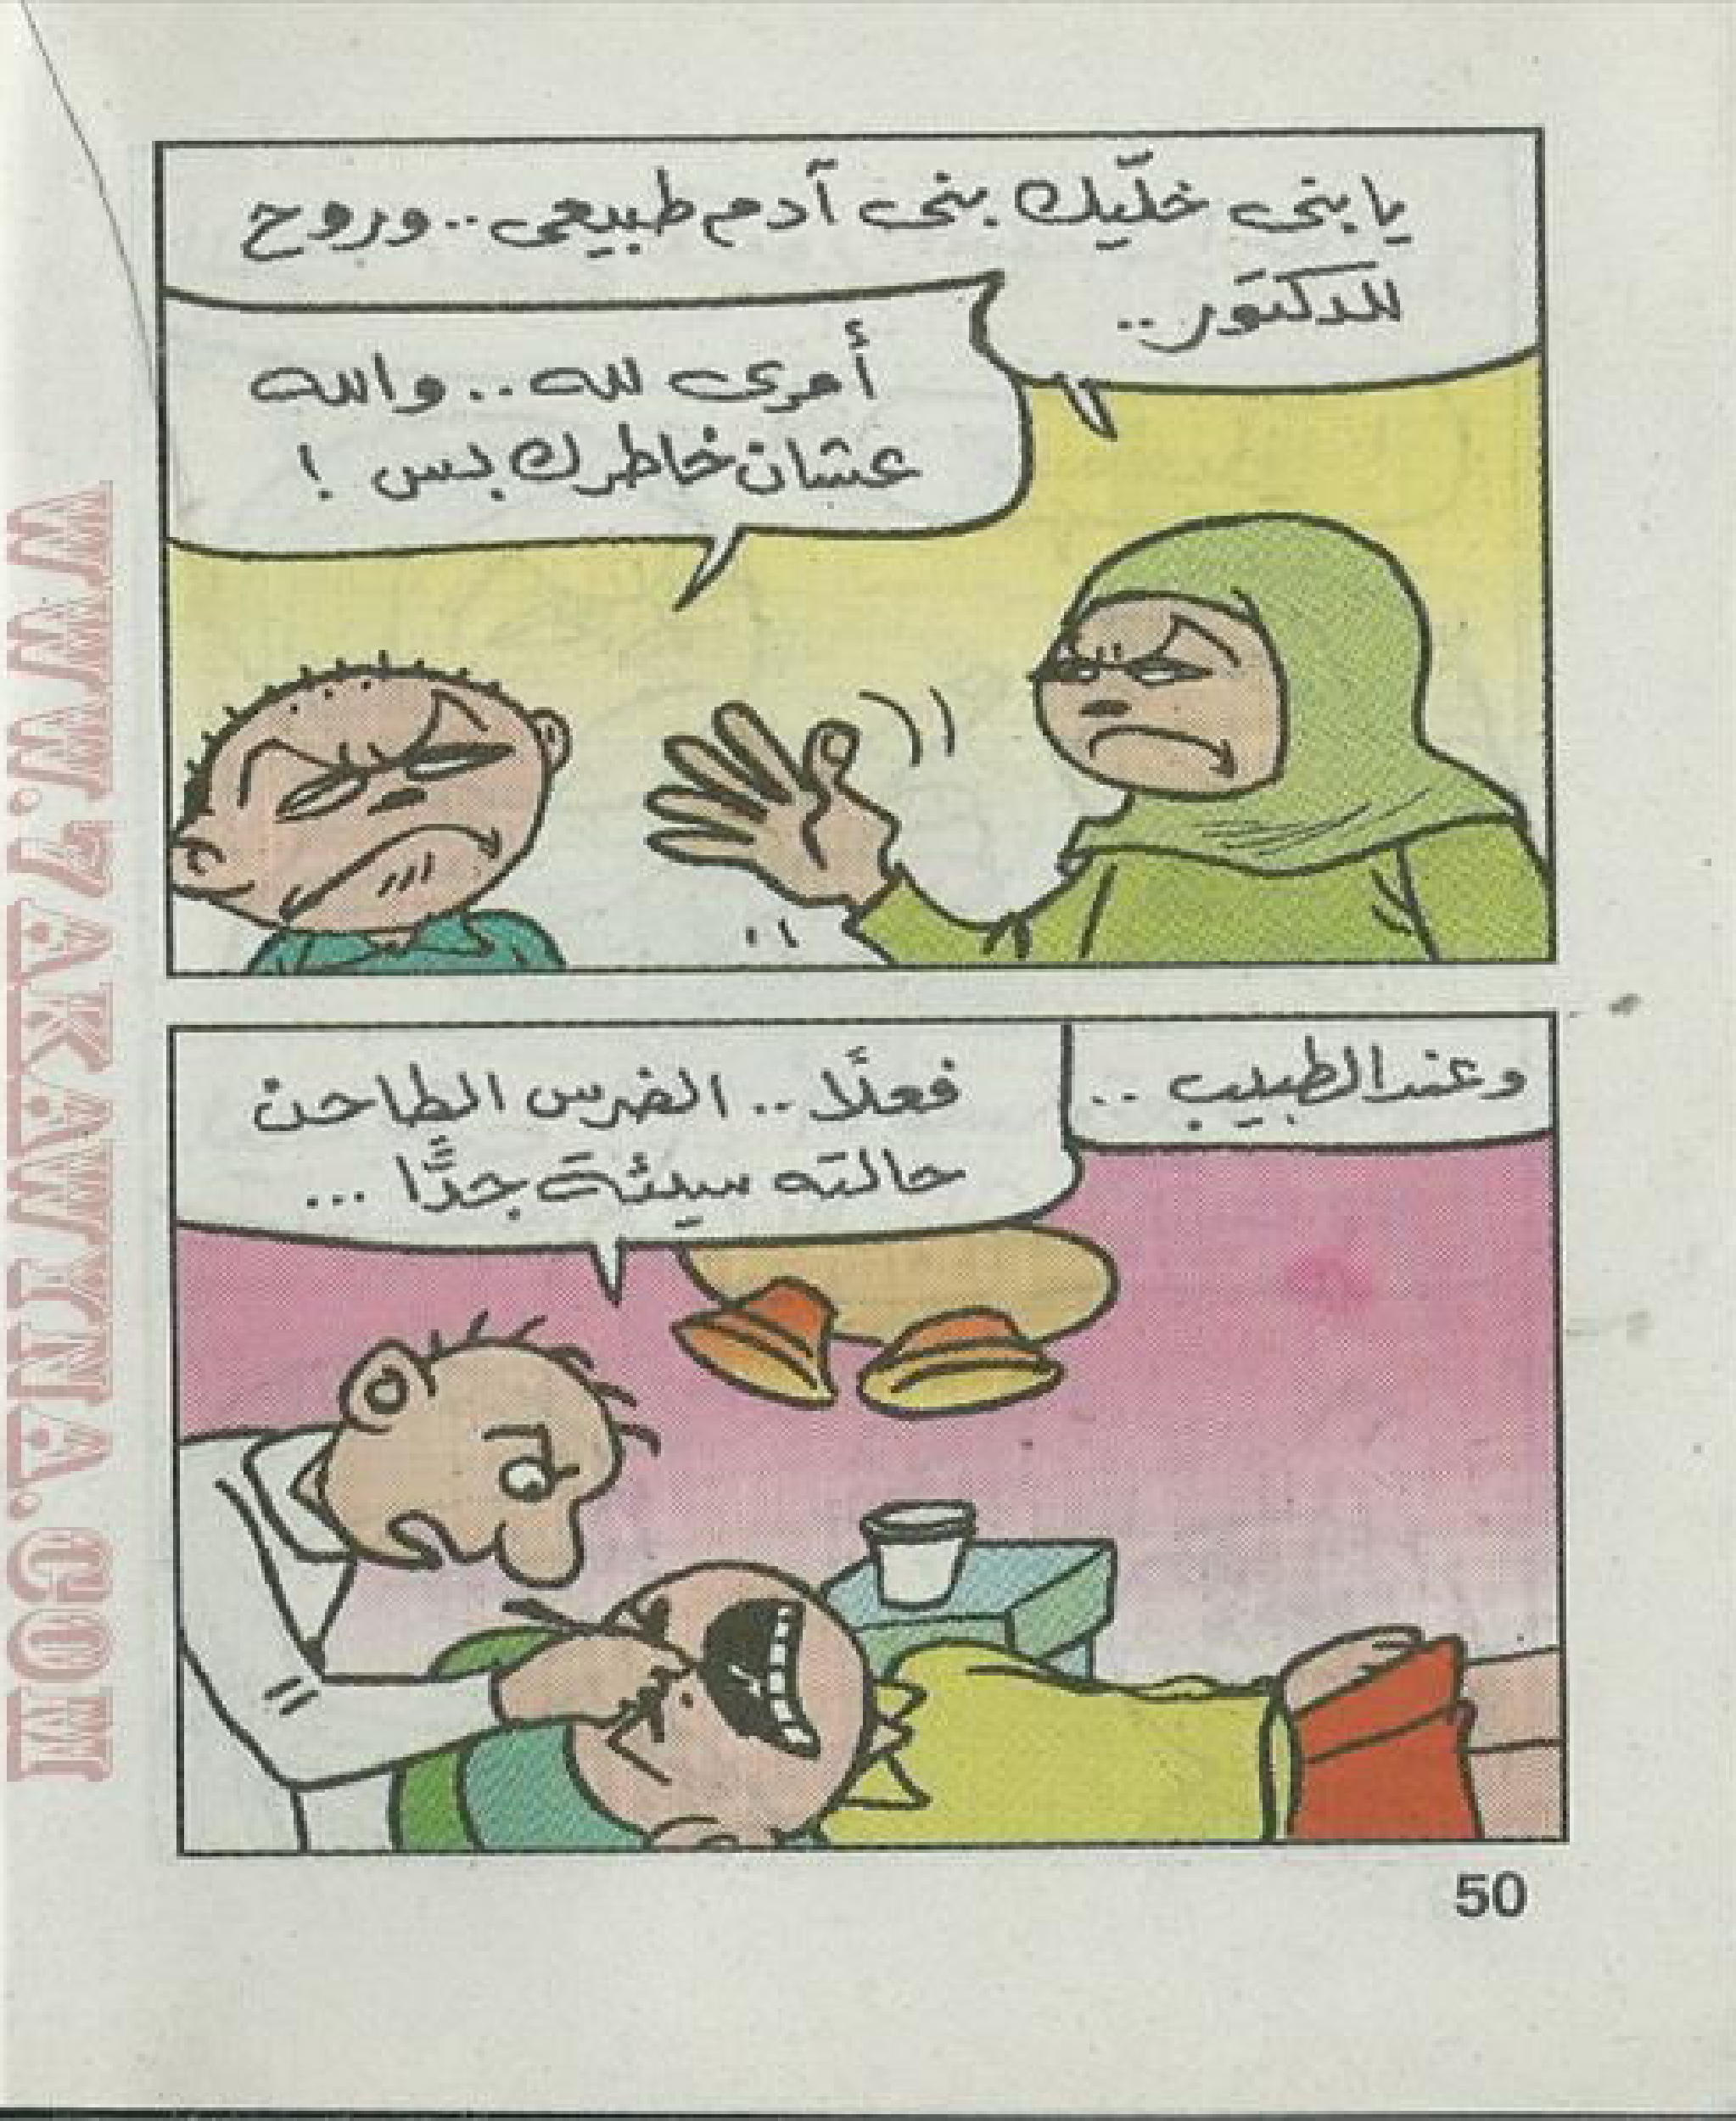 يا بنى خلّيك بنى آدم طبيعى.. وروح
للدكتور..
أمرى لله.. والله
عشان خاطرك بس !
وعند الطبيب ..
فعلًا .. الضرس الطاحن
حالته سيئة جدًّا ...
50
WWW.7AKAWINA.COM